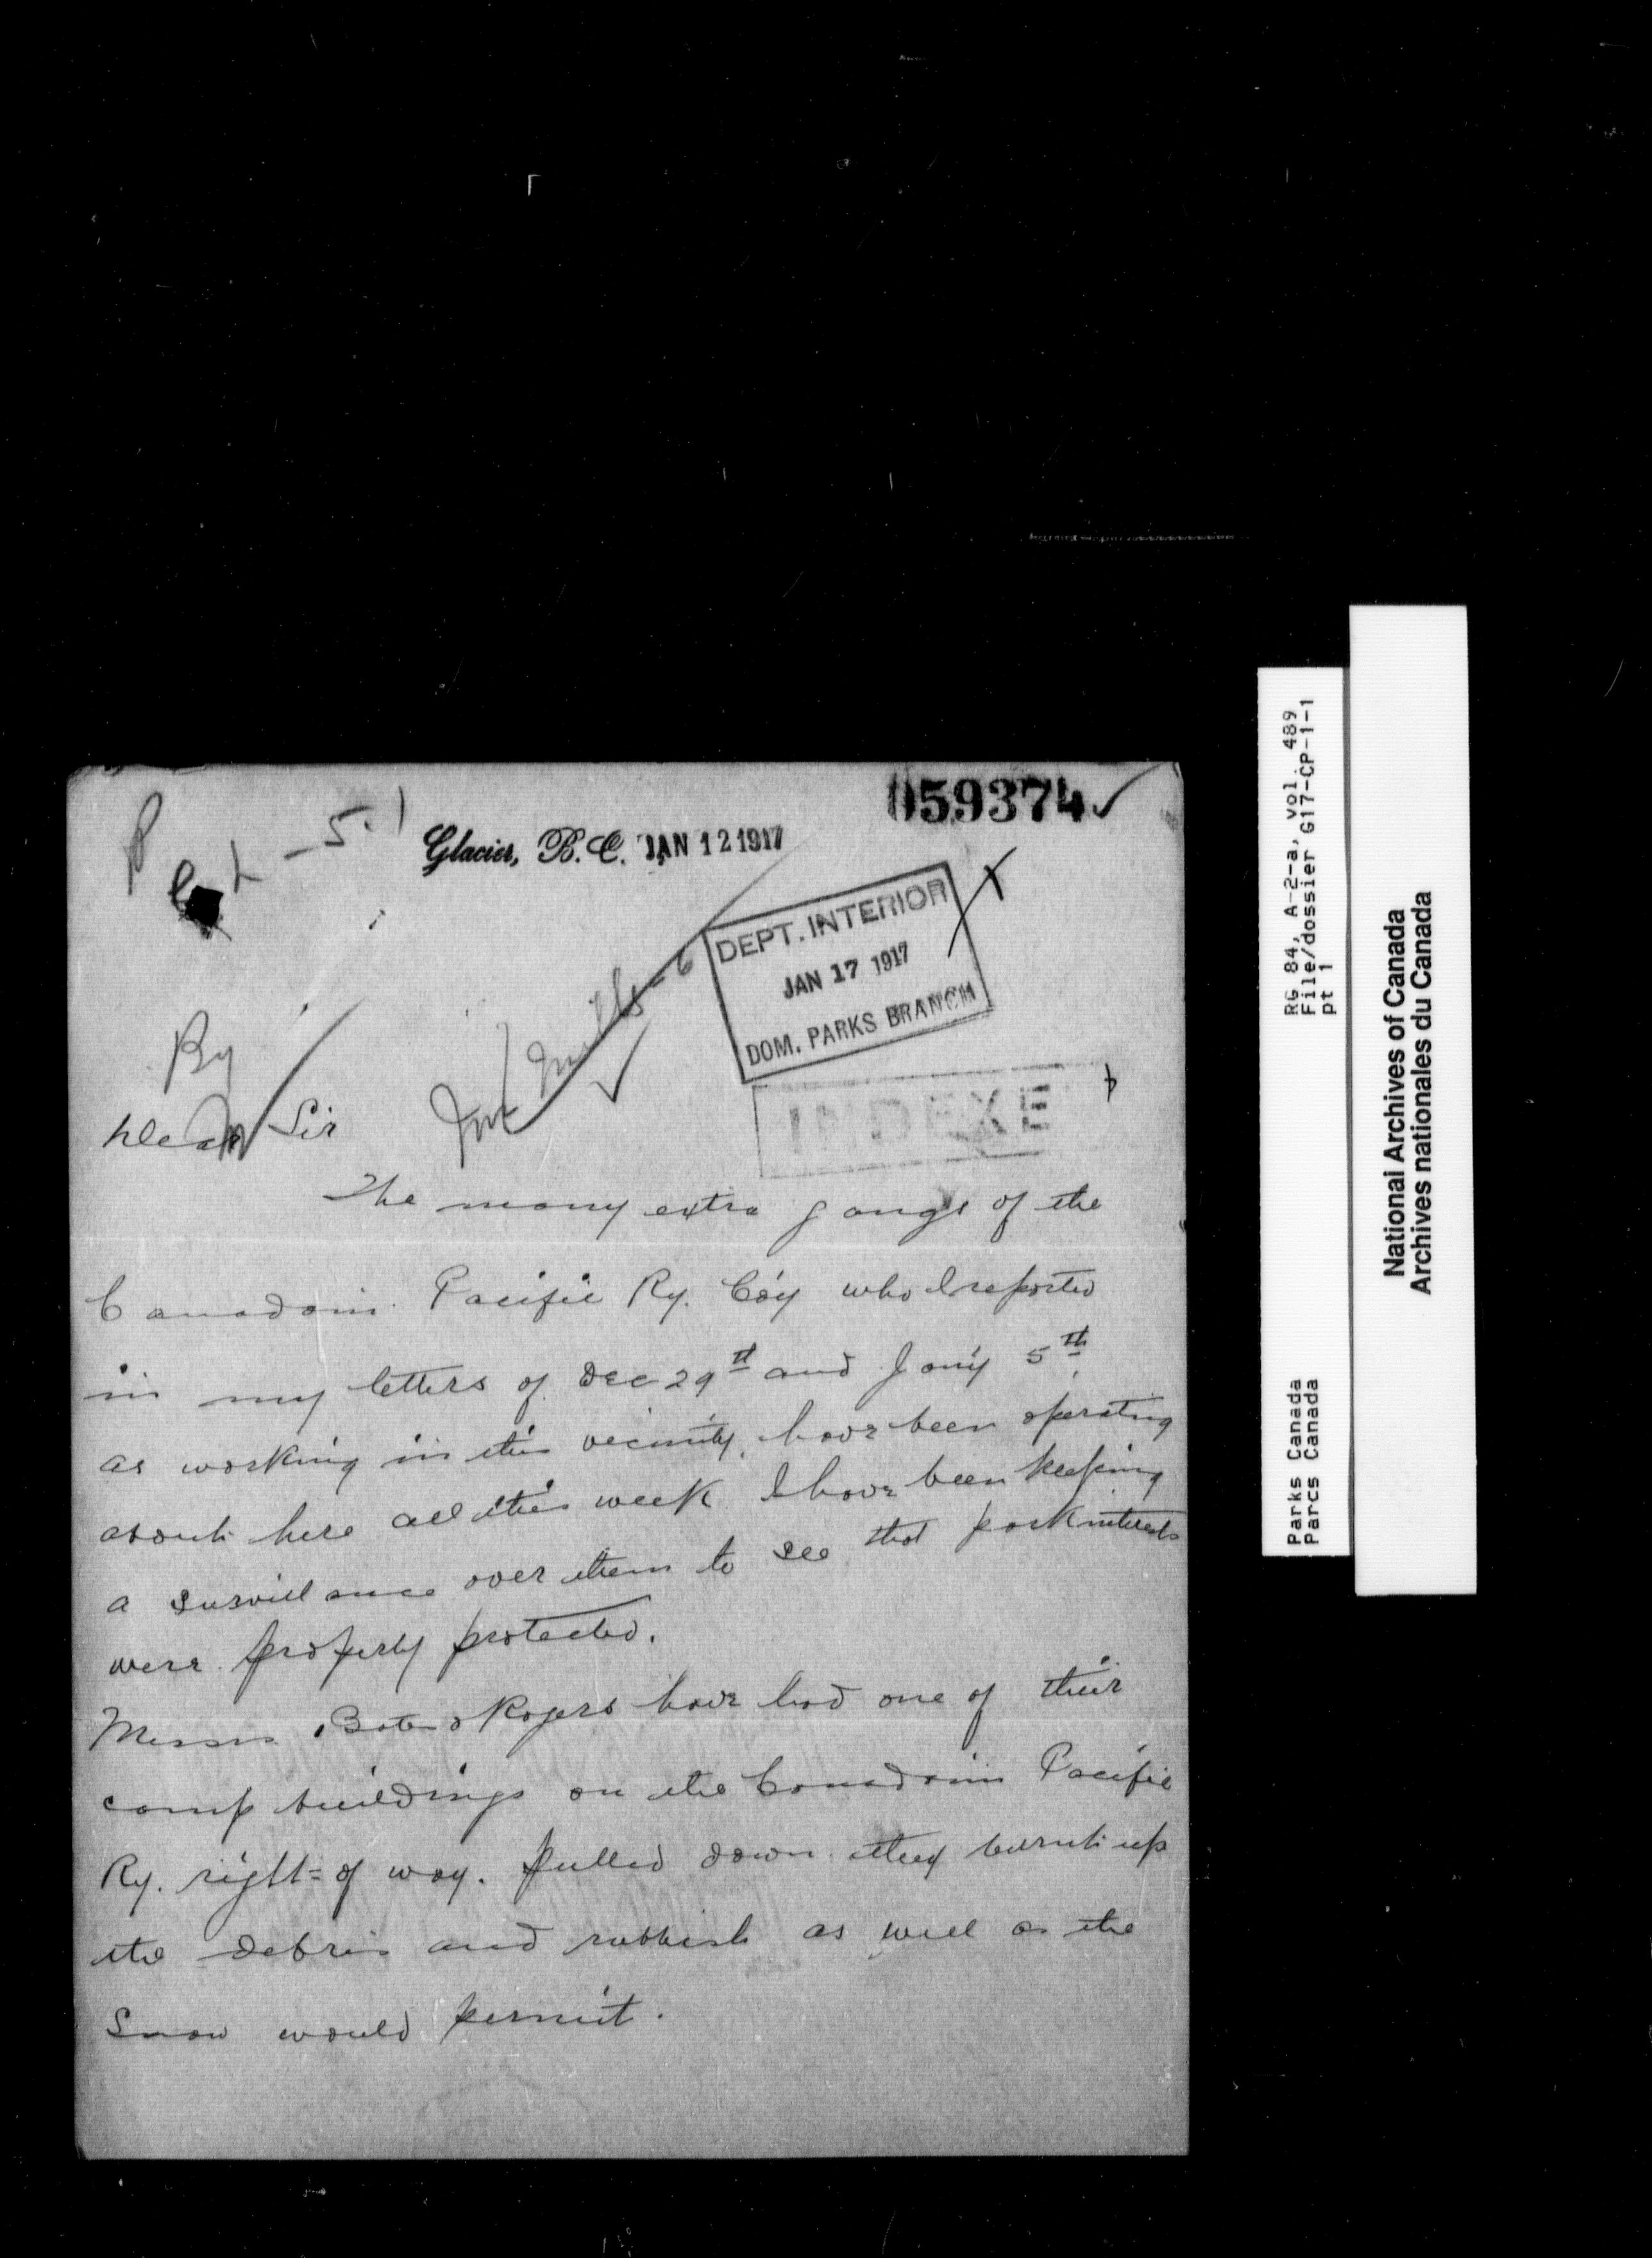 059374
Glacier, B.C. JAN 12 1917
DEPT. INTERIOR
JAN 17 1917
DOM. PARKS BRANCH
INDEXE
Ry
Dear Sir
The many extra gangs of the
Canadain Pacific Ry. Co'y who I reported
in my letters of Dec 29th and Jan'y 5th
as working in this vicinity, have been operating
about here all this week. I have been keeping
a survillance over them to see that park interests
were properly protected.
Messrs Bates & Rogers have had one of their
camp buildings on the Canadain Pacific
Ry. right=of way. pulled down they burnt up
the debris and rubbish as well as the
snow would permit.
RG 84, A-2-a, vol. 489,
File/dossier G17-CP-1-1
pt 1
Parks Canada
Parcs Canada
National Archives of Canada
Archives nationales du Canada